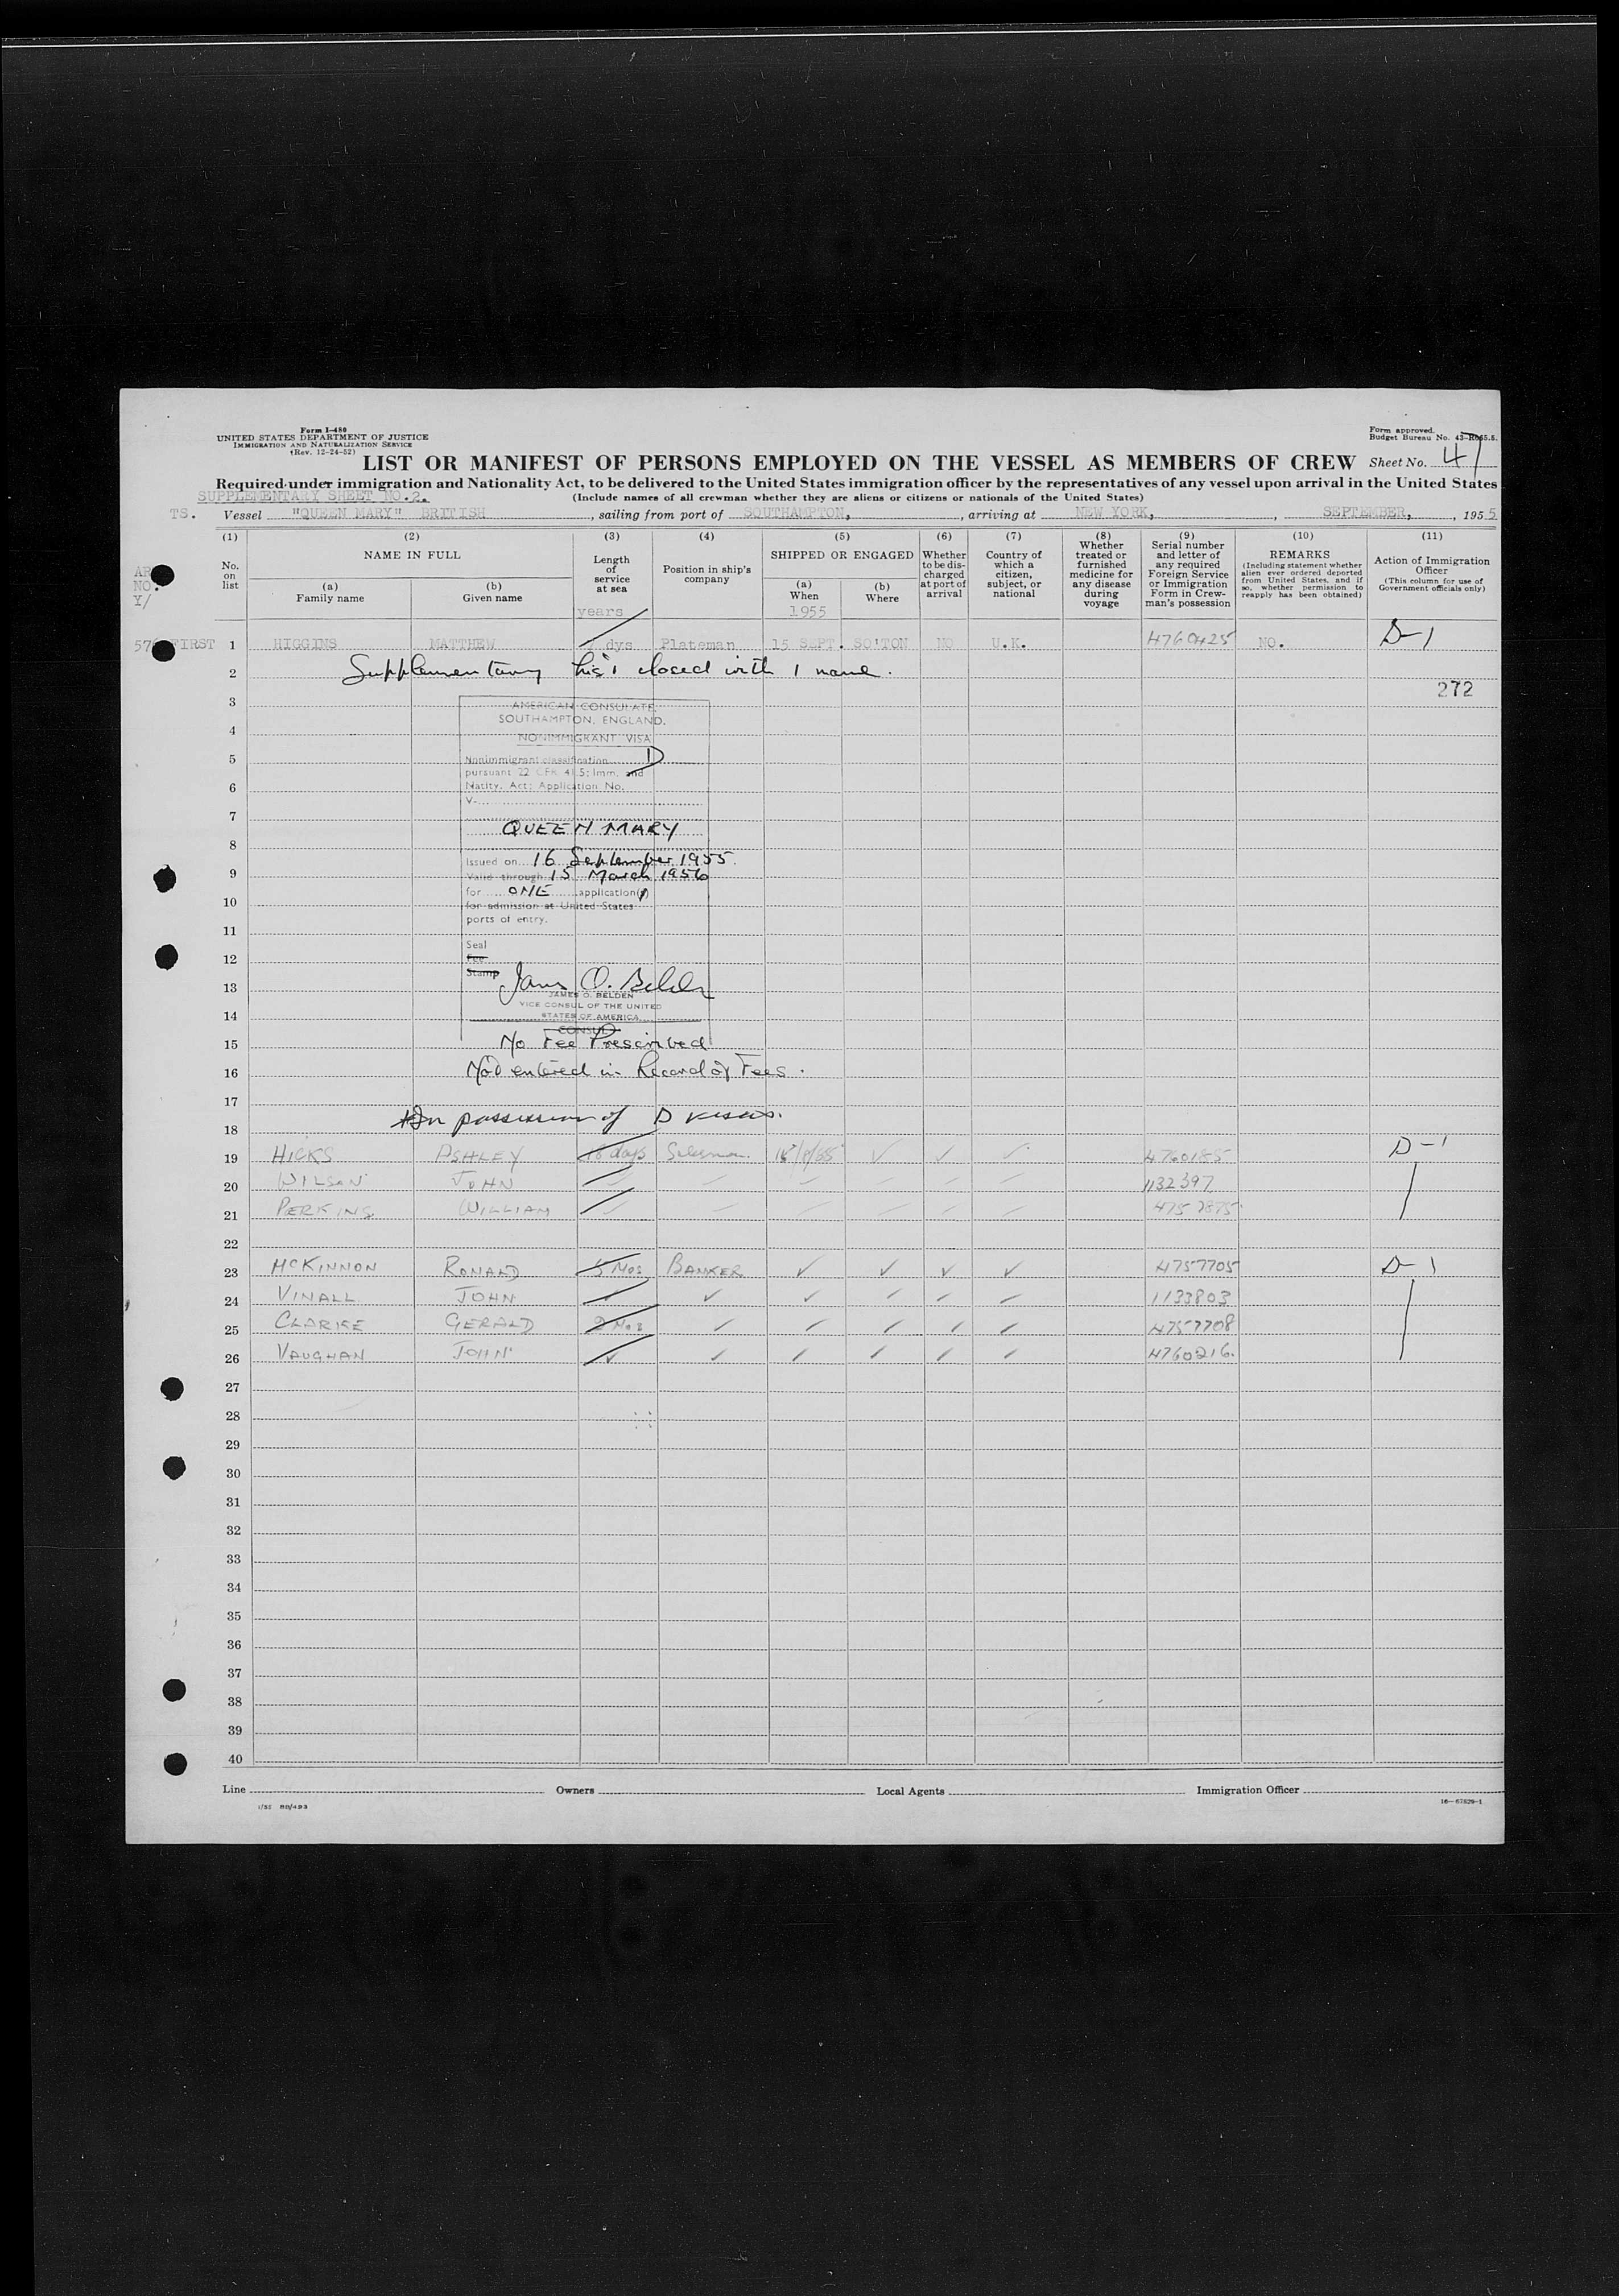 Form I-480
UNITED STATES DEPARTMENT OF JUSTICE
IMMIGRATION AND NATURALIZATION SERVICE
(Rev. 12-24-52)
Form approved.
Budget Bureau No. 43-R065.5.
LIST OR MANIFEST OF PERSONS EMPLOYED ON THE VESSEL AS MEMBERS OF CREW Sheet No. 47
Required under immigration and Nationality Act, to be delivered to the United States immigration officer by the representatives of any vessel upon arrival in the United States
SUPPLEMENTARY SHEET NO.2. (Include names of all crewman whether they are aliens or citizens or nationals of the United States)
TS. Vessel "QUEEN MARY" BRITISH, sailing from port of SOUTHAMPTON, arriving at NEW YORK, SEPTEMBER, 1955
(1) No. on list
(2) NAME IN FULL
(a) Family name
(b) Given name
(3) Length of service at sea
years
(4) Position in ship's company
(5) SHIPPED OR ENGAGED
(a) When
1955
(b) Where
(6) Whether to be discharged at port of arrival
(7) Country of which a citizen, subject, or national
(8) Whether treated or furnished medicine for any disease during voyage
(9) Serial number and letter of any required Foreign Service or Immigration Form in Crewman's possession
(10) REMARKS
(Including statement whether alien ever ordered deported from United States, and if so, whether permission to reapply has been obtained)
(11) Action of Immigration Officer
(This column for use of Government officials only)
AR
NO.
Y/
57 FIRST 1 HIGGINS MATTHEW dys Plateman 15 SEPT. SO'TON NO U.K. 4760425 NO. D-1
2 Supplementary list closed with 1 name.
272
3 AMERICAN CONSULATE
SOUTHAMPTON, ENGLAND.
4 NONIMMIGRANT VISA
5 Nonimmigrant classification D
pursuant 22 CFR 41.5; Imm. and
6 Natity. Act; Application No.
V-
7 QUEEN MARY
8 Issued on 16 September 1955.
9 Valid through 15 March 1956
for ONE application(s)
10 for admission at United States
ports of entry.
11 Seal
12 Fee
Stamp
13 James O. Belden
JAMES O. BELDEN
VICE CONSUL OF THE UNITED
14 STATES OF AMERICA
CONSUL
15 No Fee Prescribed
16 Not entered in Record of Fees.
17
18 In possession of D visas.
19 HICKS ASHLEY 18 days 4760185 D-1
20 WILSON JOHN 1132397
21 PERKINS WILLIAM 4757875
22
23 MCKINNON RONALD 5 Mos BANKER ✓ ✓ ✓ ✓ 4757705 D-1
24 VINALL JOHN ✓ ✓ ✓ 1133803
25 CLARKE GERALD 2 Mos ✓ ✓ ✓ ✓ ✓ 4757708
26 VAUGHAN JOHN ✓ ✓ ✓ ✓ ✓ ✓ 4760216.
27
28
29
30
31
32
33
34
35
36
37
38
39
40
Line Owners Local Agents Immigration Officer
1/55 80/493
16-67829-1